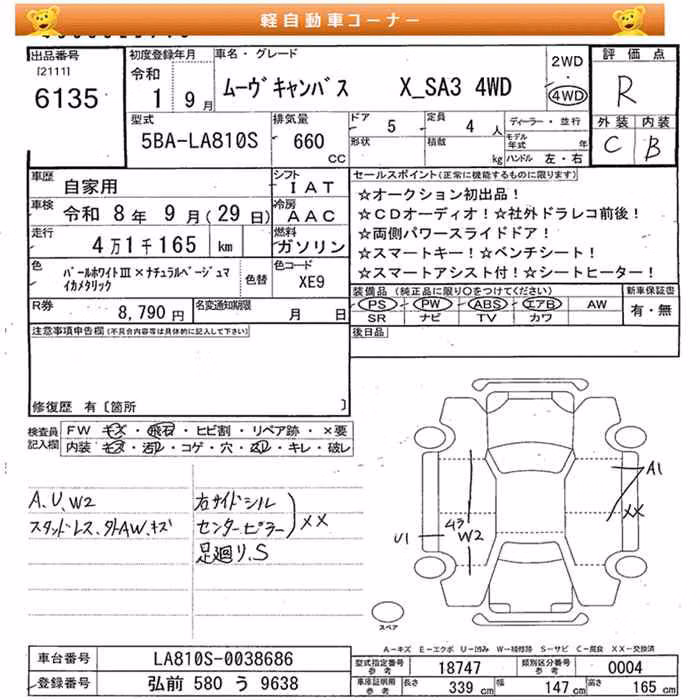 軽自動車コーナー
出品番号
[2111]
6135
初度登録年月
令和
1 9月
車名・グレード
ムーヴキャンバス X_SA3 4WD
2WD
・
4WD
評価点
R
外装 内装
C B
型式
5BA-LA810S
排気量
660
CC
ドア 5
形状
定員 4 人
積載 kg
ディーラー・並行
モデル年式 年
ハンドル 左・右
車歴
自家用
シフト
IAT
車検
令和 8年 9月(29日)
冷房
AAC
走行
4万1千165 km
燃料
ガソリン
色
パールホワイトⅢ×ナチュラルベージュマ
イカメタリック
色替
色コード
XE9
R券
8,790 円
名変通知期限
月 日
セールスポイント(正常に機能するものに限ります)
☆オークション初出品!
☆CDオーディオ!☆社外ドラレコ前後!
☆両側パワースライドドア!
☆スマートキー!☆ベンチシート!
☆スマートアシスト付!☆シートヒーター!
装備品 (純正品に限り○をつけてください)
PS PW ABS エアB AW
SR ナビ TV カワ
新車保証書
有・無
注意事項申告欄(不具合内容等は具体的に記入して下さい)
後日品
修復歴 有〔箇所 〕
検査員
記入欄
FW キズ・飛石・ヒビ割・リペア跡・×要
内装 キズ・汚れ・コゲ・穴・スレ・キレ・破レ
A、U、W2
スタッドレス、外AW、キズ
右サイドシル
センターピラー
XX
足廻り、S
A1
XX
U1
43
W2
スペア
A-キズ E-エクボ U-凹み W-補修跡 S-サビ C-腐食 XX-交換済
車台番号
LA810S-0038686
登録番号
弘前 580 う 9638
型式指定番号
参考
18747
類別区分番号
参考
0004
車庫証明用
参考
長さ 339 cm
幅 147 cm
高さ 165 cm